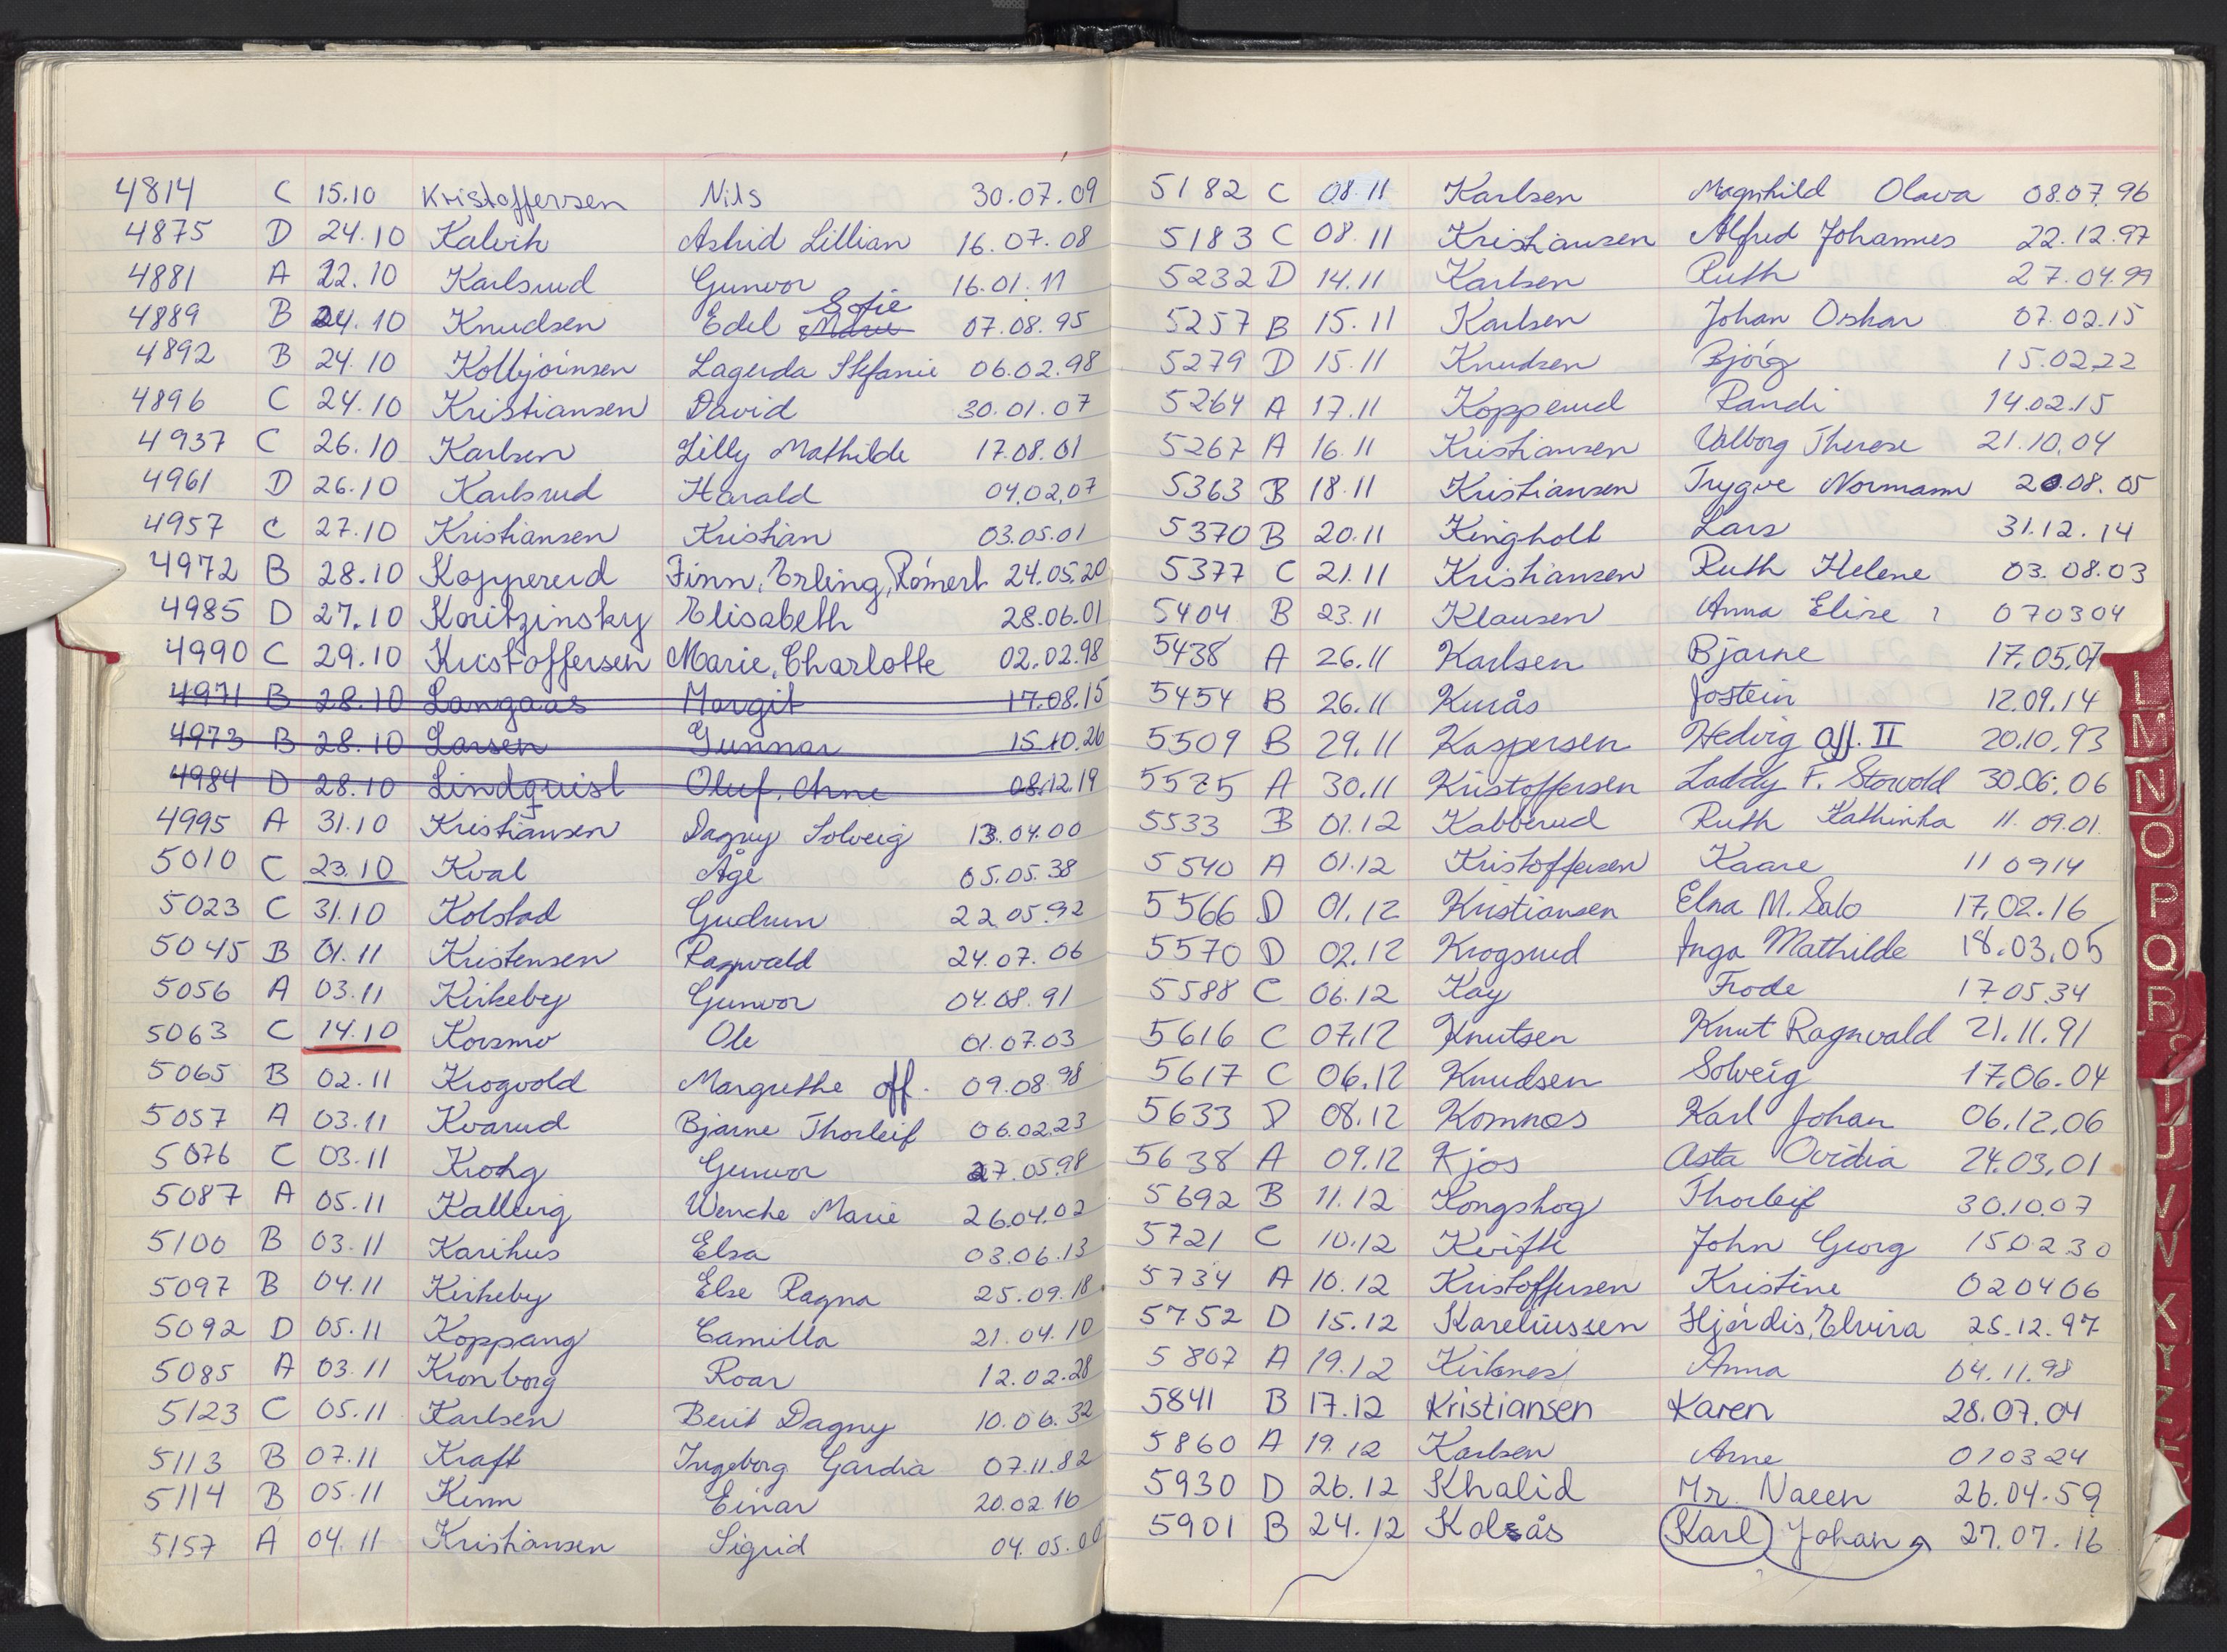 4814 C 15.10 Kristoffersen Nils 30.07.09
4875 D 24.10 Kalvik Astrid Lillian 16.07.08
4881 A 22.10 Karlsrud Gunvor 16.01.11
4889 B 24.10 Knudsen Edel Marie Sofie 07.08.95
4892 B 24.10 Kolbjørnsen Lagerda Stefanie 06.02.98
4896 C 24.10 Kristiansen David 30.01.07
4937 C 26.10 Karlsen Lilly Mathilde 17.08.01
4961 D 26.10 Karlsrud Harald 04.02.07
4957 C 27.10 Kristiansen Kristian 03.05.01
4972 B 28.10 Kopperud Finn, Erling, Rómert 24.05.20
4985 D 27.10 Koritzinsky Elisabeth 28.06.01
4990 C 29.10 Kristoffersen Marie, Charlotte 02.02.98
4971 B 28.10 Langaas Margit 17.08.15
4973 B 28.10 Larsen Gunnar 15.10.26
4984 D 28.10 Lindquist Oluf, Arne 08.12.19
4995 A 31.10 Kristiansen Dagny Solveig 13.04.00
5010 C 23.10 Kval Åge 05.05.38
5023 C 31.10 Kolstad Gudrun 22.05.92
5045 B 01.11 Kristensen Ragnvald 24.07.06
5056 A 03.11 Kirkeby Gunvor 04.08.91
5063 C 14.10 Korsmo Ole 01.07.03
5065 B 02.11 Krogvold Margrethe off. 09.08.98
5057 A 03.11 Kvarud Bjarne Thorleif 06.02.23
5076 C 03.11 Krohg Gunvor 27.05.98
5087 A 05.11 Kallevig Wenche Marie 26.04.02
5100 B 03.11 Karihus Elsa 03.06.13
5097 B 04.11 Kirkeby Else Ragna 25.09.18
5092 D 05.11 Koppang Camilla 21.04.10
5085 A 03.11 Kronborg Roar 12.02.28
5123 C 05.11 Karlsen Berit Dagny 10.06.32
5113 B 07.11 Kraft Ingeborg Gardia 07.11.82
5114 B 05.11 Kinn Einar 20.02.16
5157 A 04.11 Kristiansen Sigrid 04.05.00
5182 C 08.11 Karlsen Magnhild Olava 08.07.96
5183 C 08.11 Kristiansen Alfred Johannes 22.12.97
5232 D 14.11 Karlsen Ruth 27.04.99
5257 B 15.11 Karlsen Johan Oskar 07.02.15
5279 D 15.11 Knudsen Bjórg 15.0222
5264 A 17.11 Kopperud Randi 14.02.15
5267 A 16.11 Kristiansen Valborg Therese 21.10.04
5363 B 18.11 Kristiansen Trygve Normann 20.08.05
5370 B 20.11 Kingholt Lars 31.12.14
5377 C 21.11 Kristiansen Ruth Helene 03.08.03
5404 B 23.11 Klausen Anna Elise 070304
5438 A 26.11 Karlsen Bjarne 17.05.07
5454 B 26.11 Kurås Jostein 12.09.14
5509 B 29.11 Kaspersen Hedvig aff. II 20.10.93
5525 A 30.11 Kristoffersen Laddy F. Storvold 30.06.06
5533 B 01.12 Kabberud Ruth Kathinka 11.09.01.
5540 A 01.12 Kristoffersen Kaare 110914
5566 D 01.12 Kristiansen Elna M. Salo 17.02.16
5570 D 02.12 Krogsrud Inga Mathilde 18.03.05
5588 C 06.12 Kay Frode 17.05.34
5616 C 07.12 Knutsen Knut Ragnvald 21.11.91
5617 C 06.12 Knudsen Solveig 17.06.04
5633 D 08.12 Komnes Karl Johan 06.12.06
5638 A 09.12 Kjos Asta Ovidia 24.03.01
5692 B 11.12 Kongshog Thorleif 30.10.07
5721 C 10.12 Kvifte John Georg 150230
5734 A 10.12 Kristoffersen Kristine 020406
5752 D 15.12 Kareliussen Hjördis, Elvira 25.12.97
5807 A 19.12 Kirknes Anna 04.11.98
5841 B 17.12 Kristiansen Karen 28.07.04
5860 A 19.12 Karlsen Arne 010324
5930 D 26.12 Khalid Mr. Naeen 26.04.59
5901 B 24.12 Kolsås Karl Johan 27.07.16
L
M
N
O
P
Q
R
U
V
W
X
Y
Z